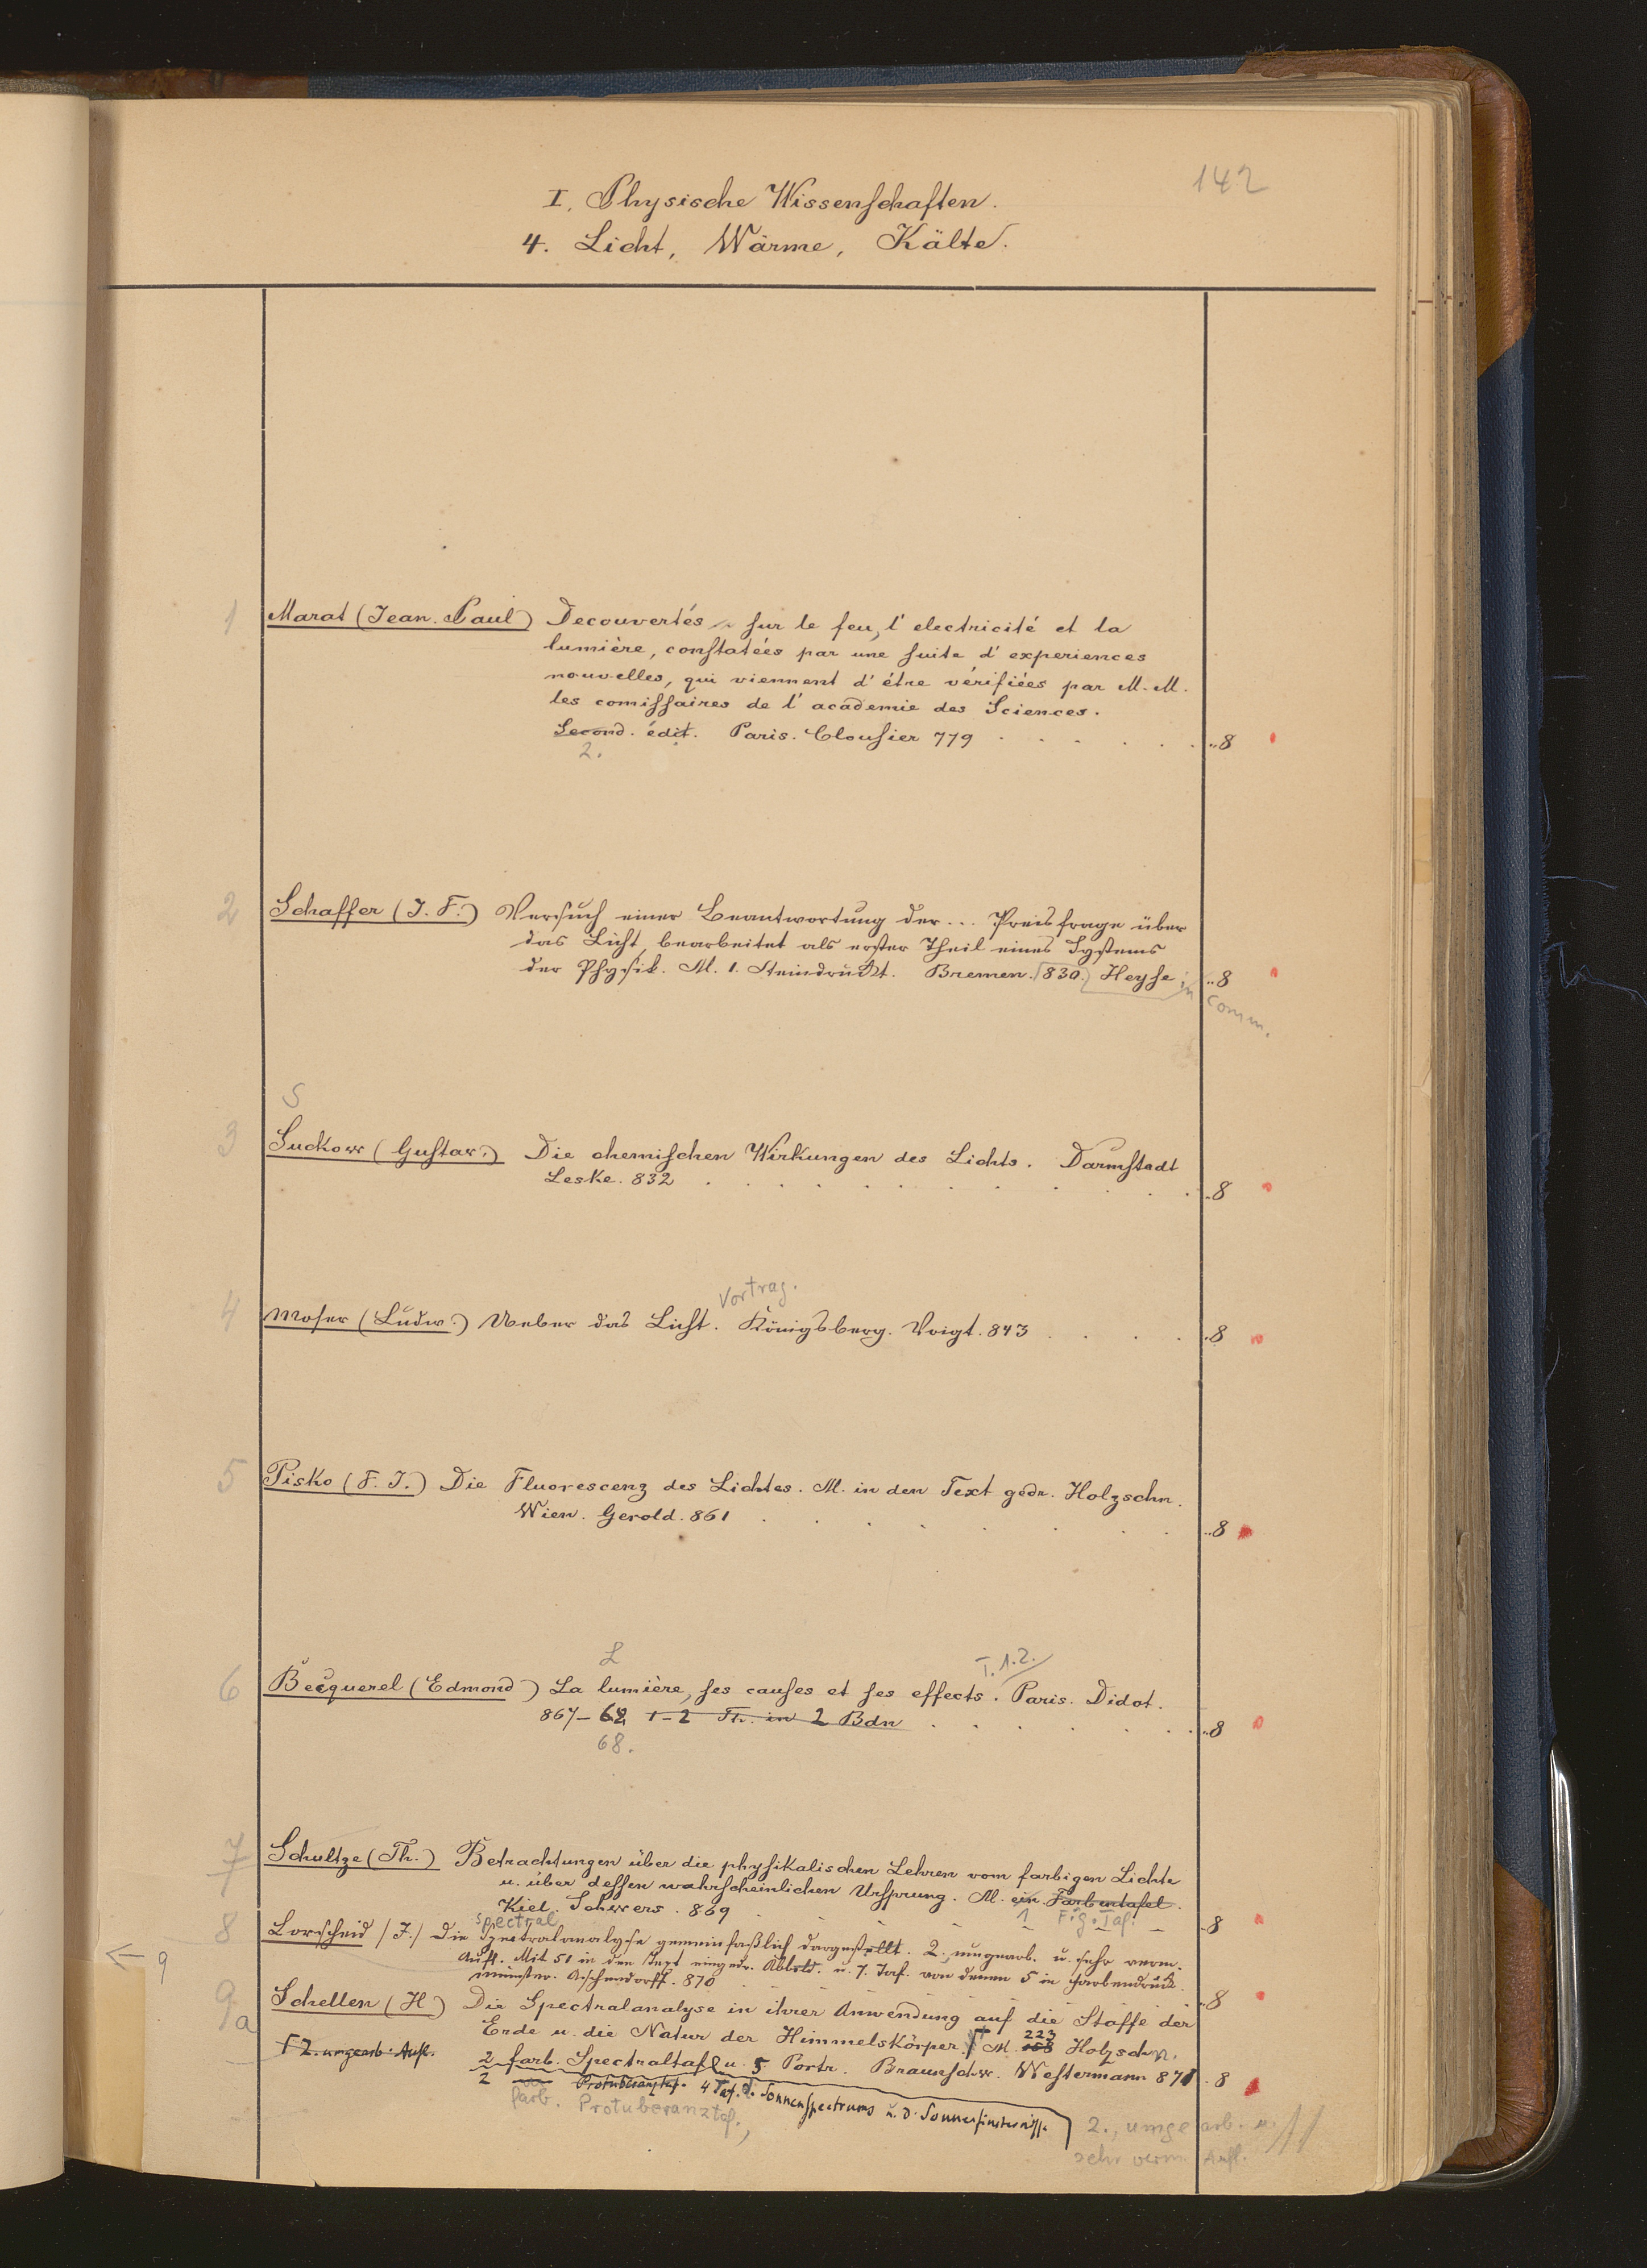 142
I. Physische Wissenschaften.
4. Licht, Wärme, Kälte.
1 Marat (Jean Paul) Decouvertés sur le feu, l'electricité et la
lumière, constatées par une suite d'experiences
nouvelles, qui viennent d'étre verifiées par M. M.
les comissaires de l'academie des Sciences.
Second. édit. Paris. Clousier 779 ..8
2.
2 Schaffer (J. F.) Versuch einer Beantwortung der ... Preisfrage über
das Licht, bearbeitet als erster Theil eines Systems
der Physik. M. 1. Steindruckt. Bremen. 830. Heyse in ..8
Comm.
S
3 Suckow (Gustav.) Die chemischen Wirkungen des Lichts. Darmstadt
Leske. 832 ..8
Vortrag.
4 Moser (Ludw.) Ueber das Licht. Königsberg. Voigt. 843 ..8
5 Pisko (F. J.) Die Fluorescenz des Lichtes. M. in den Text gedr. Holzschn.
Wien. Gerold. 861 ..8
L T. 1.2.
6 Becquerel (Edmond) La lumière, ses causes et ses effects. Paris. Didot.
867– 68 1–2 Th. in 2 Bdn ..8
68.
7 Schultze (Th.) Betrachtungen über die physikalischen Lehren vom farbigen Lichte
u. über dessen wahrscheinlichen Ursprung. M. ein Farbentafel.
Kiel. Schwers. 869 1 Fig. Taf. 8
spectral
8 Lorscheid (J.) Die Spectralanalyse gemeinfaßlich dargestellt. 2., umgearb. u. sehr verm.
Aufl. Mit 51 in den Text eingedr. Abbild. u. 7. Taf. von denen 5 in Farbendruck.
Münster. Aschendorff. 870 8
← 9
9 Schellen (H) Die Spectralanalyse in ihrer Anwendung auf die Stoffe der
9a Erde u. die Natur der Himmelskörper. M. 158 Holzschn.
223
2. umgearb. Aufl. 2 farb. Spectraltafl u. 5 Portr. Braunschw. Westermann 871 8
2 Protuberanztaf. 4 Taf. d. Sonnenspectrums u. d. Sonnenfinsterniss.
farb. Protuberanztaf., 2., umgearb. u.
sehr verm. Aufl.